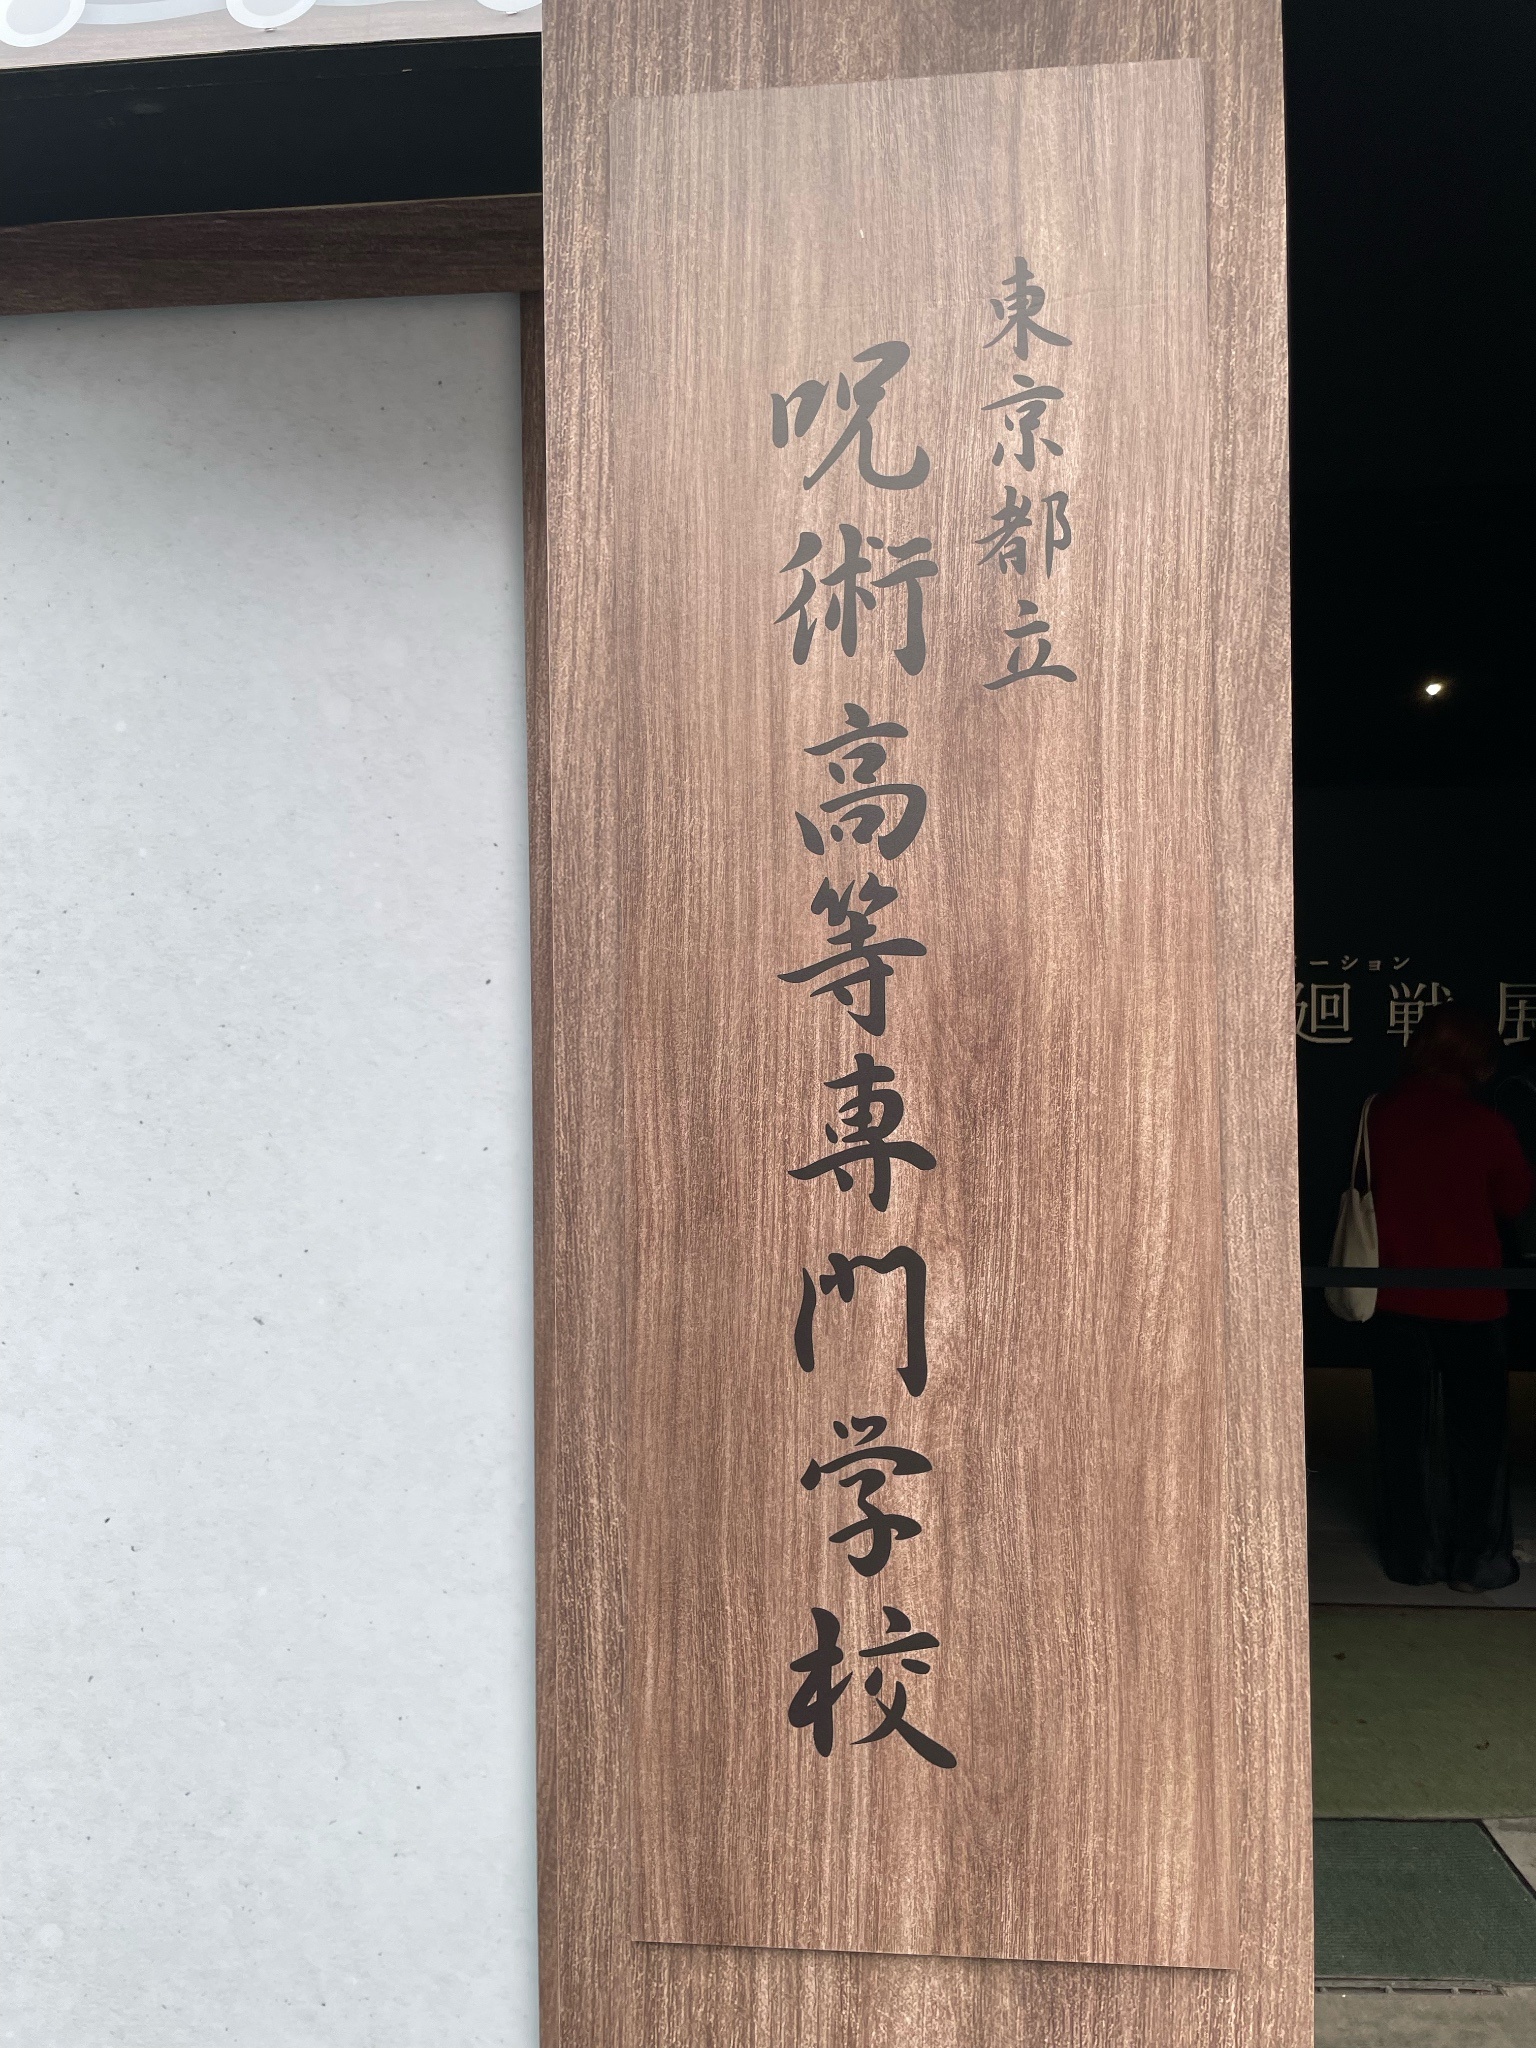 東京都立
呪術高等専門学校
ーション
廻戦展